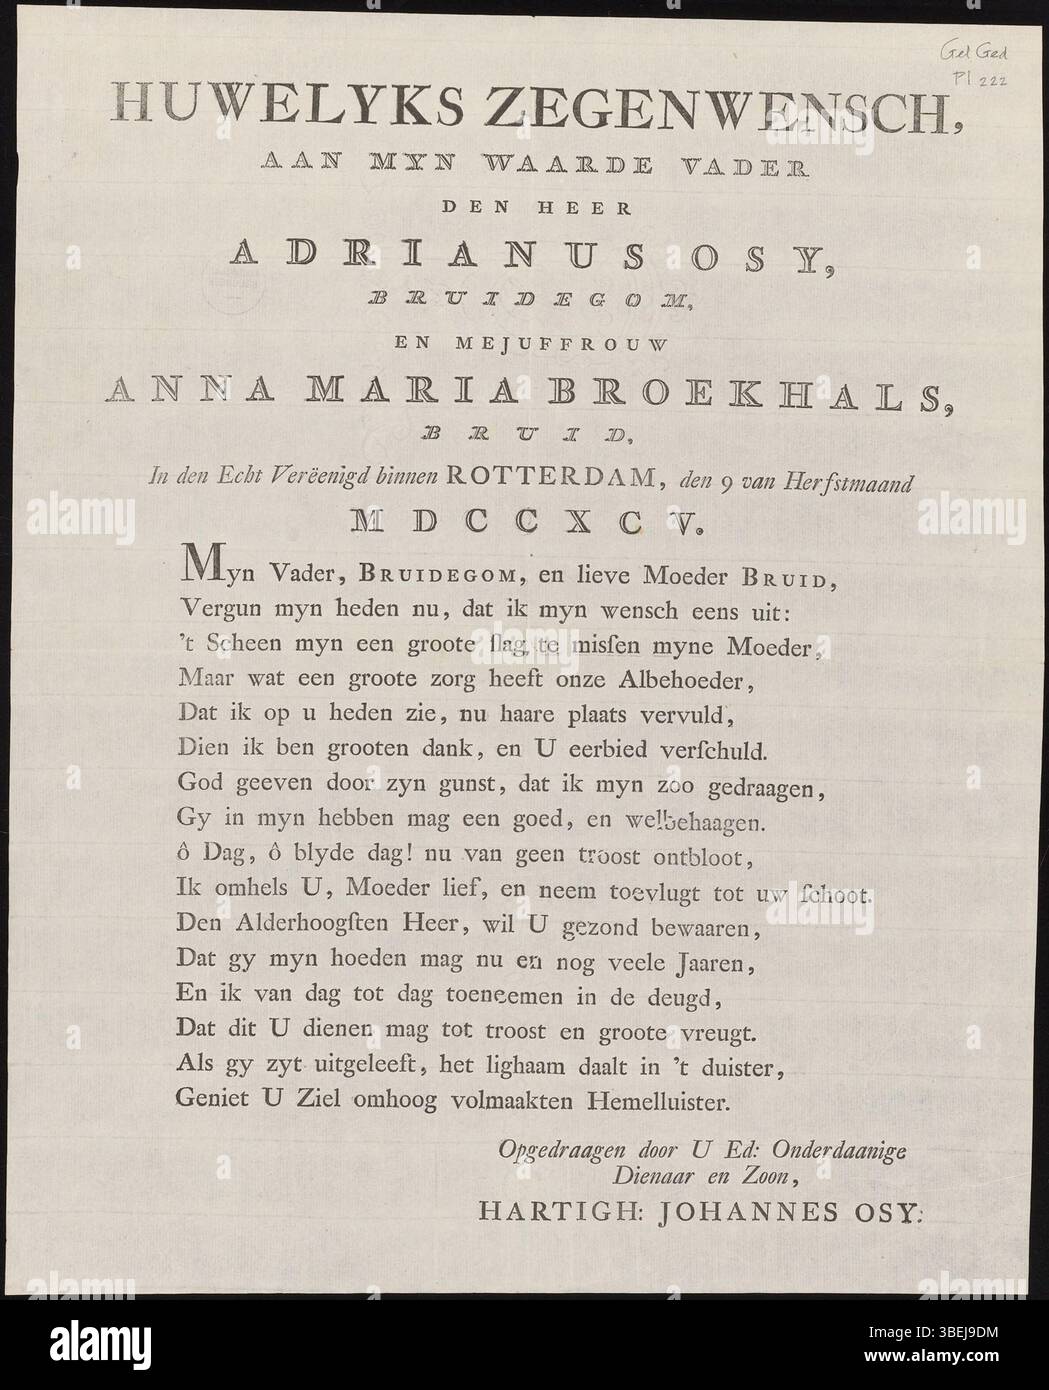 Gel Ged
Pl 222
HUWELYKS ZEGENWENSCH,
AAN MYN WAARDE VADER
DEN HEER
ADRIANUS OSY,
BRUIDEGOM,
EN MEJUFFROUW
ANNA MARIA BROEKHALS,
BRUID,
In den Echt Verëenigd binnen ROTTERDAM, den 9 van Herfstmaand
MDCCXCV.
Myn Vader, BRUIDEGOM, en lieve Moeder BRUID,
Vergun myn heden nu, dat ik myn wensch eens uit:
't Scheen myn een groote ſlag, te misſen myne Moeder,
Maar wat een groote zorg heeft onze Albehoeder,
Dat ik op u heden zie, nu haare plaats vervuld,
Dien ik ben grooten dank, en U eerbied verſchuld.
God geeven door zyn gunst, dat ik myn zoo gedraagen,
Gy in myn hebben mag een goed, en welbehaagen.
ô Dag, ô blyde dag! nu van geen troost ontbloot,
Ik omhels U, Moeder lief, en neem toevlugt tot uw ſchoot.
Den Alderhoogſten Heer, wil U gezond bewaaren,
Dat gy myn hoeden mag nu en nog veele Jaaren,
En ik van dag tot dag toeneemen in de deugd,
Dat dit U dienen mag tot troost en groote vreugt.
Als gy zyt uitgeleeft, het lighaam daalt in 't duister,
Geniet U Ziel omhoog volmaakten Hemelluister.
Opgedraagen door U Ed: Onderdaanige
Dienaar en Zoon,
HARTIGH: JOHANNES OSY:
alamy
Image ID: 3BEJ9DM
www.alamy.com